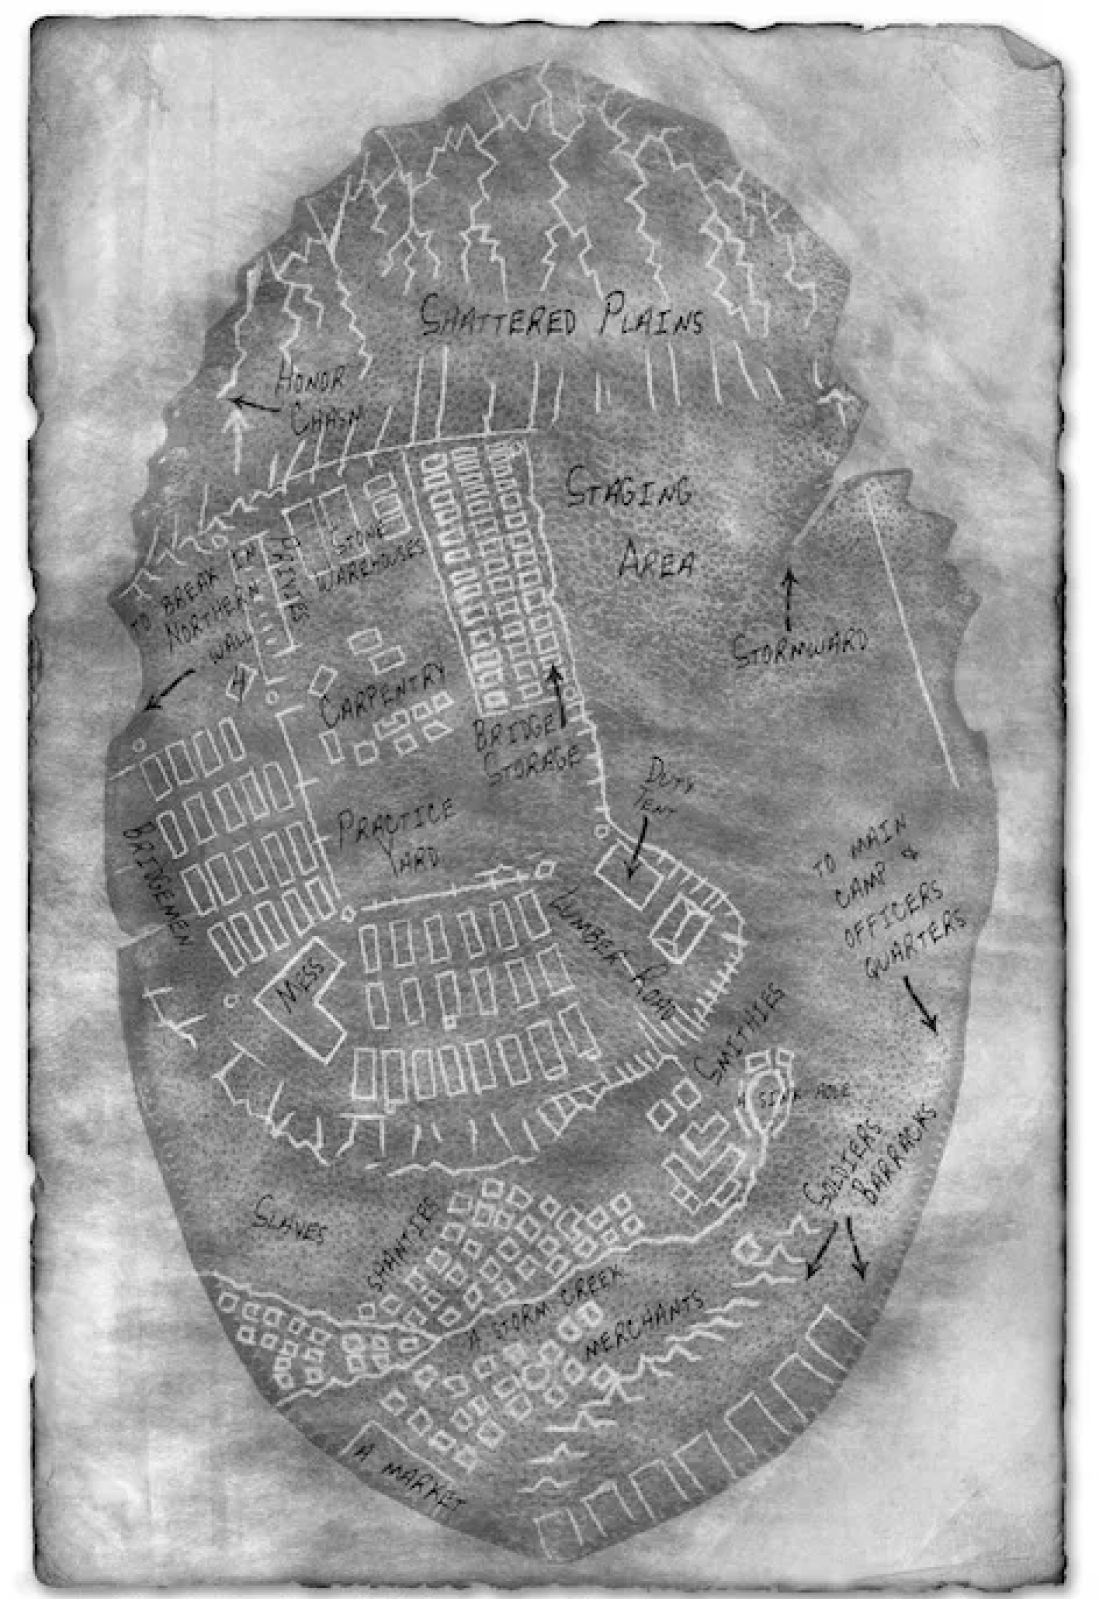 SHATTERED PLAINS
HONOR
CHASM
STAGING
AREA
STONE
WAREHOUSES
PRIVIES
TO BREAK IN
NORTHERN
WALL
STORMWARD
CARPENTRY
BRIDGE
STORAGE
DUTY
TENT
PRACTICE
YARD
BRIDGEMEN
TO MAIN
CAMP &
OFFICERS
QUARTERS
LUMBER ROAD
MESS
SMITHIES
A SINK HOLE
SOLDIERS
BARRACKS
SLAVES
SHANTIES
A STORM CREEK
MERCHANTS
A MARKET